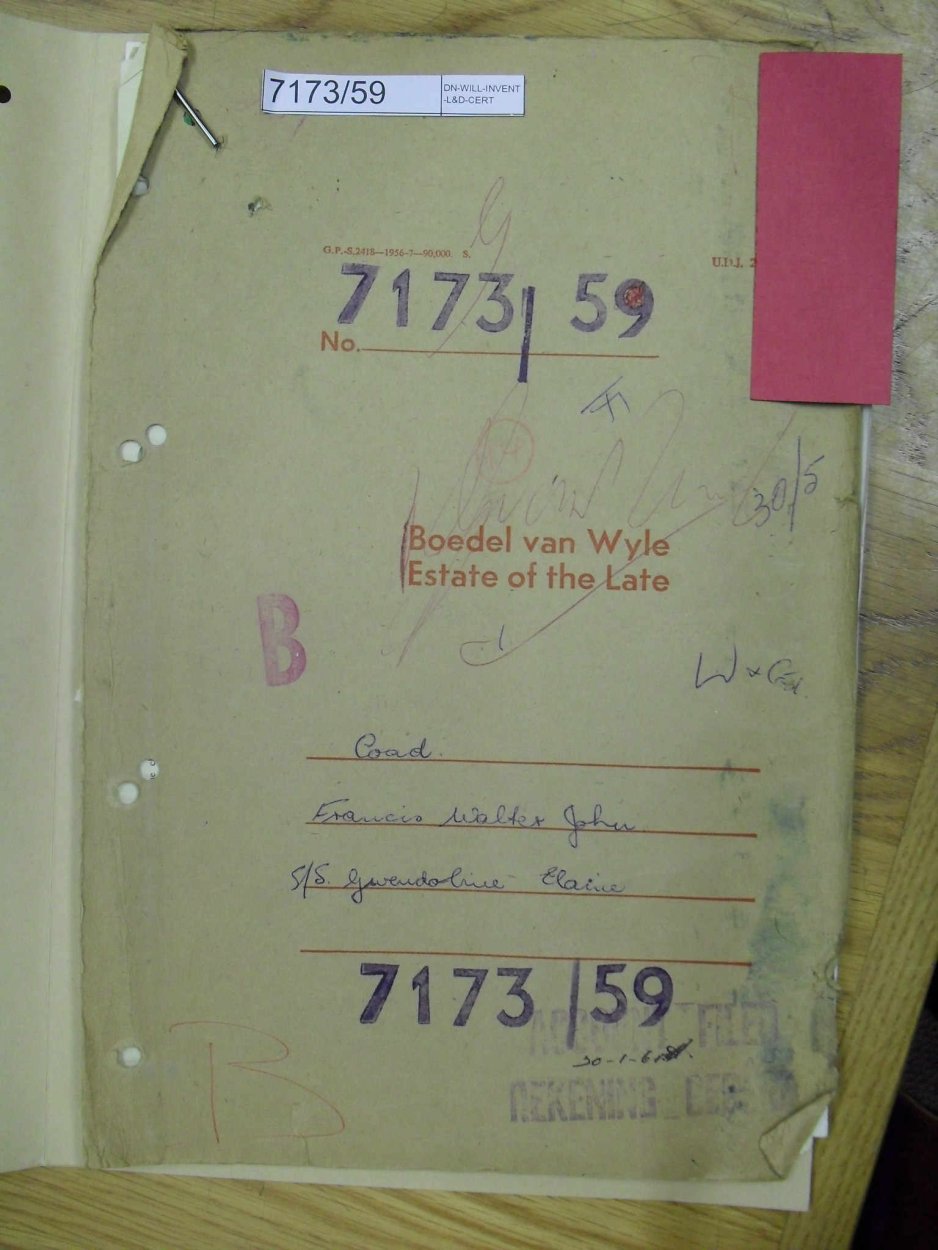 7173/59
DN-WILL-INVENT
-L&D-CERT
G.P.-S.2418—1956-7—90,000. S.
U.D.J. 2
7173/59
No.
30/5
Boedel van Wyle
Estate of the Late
B
W &
Coad.
Francis Walter John
S/S. Gwendoline Elaine
7173/59
FILED
20-1-61
REKENING
B